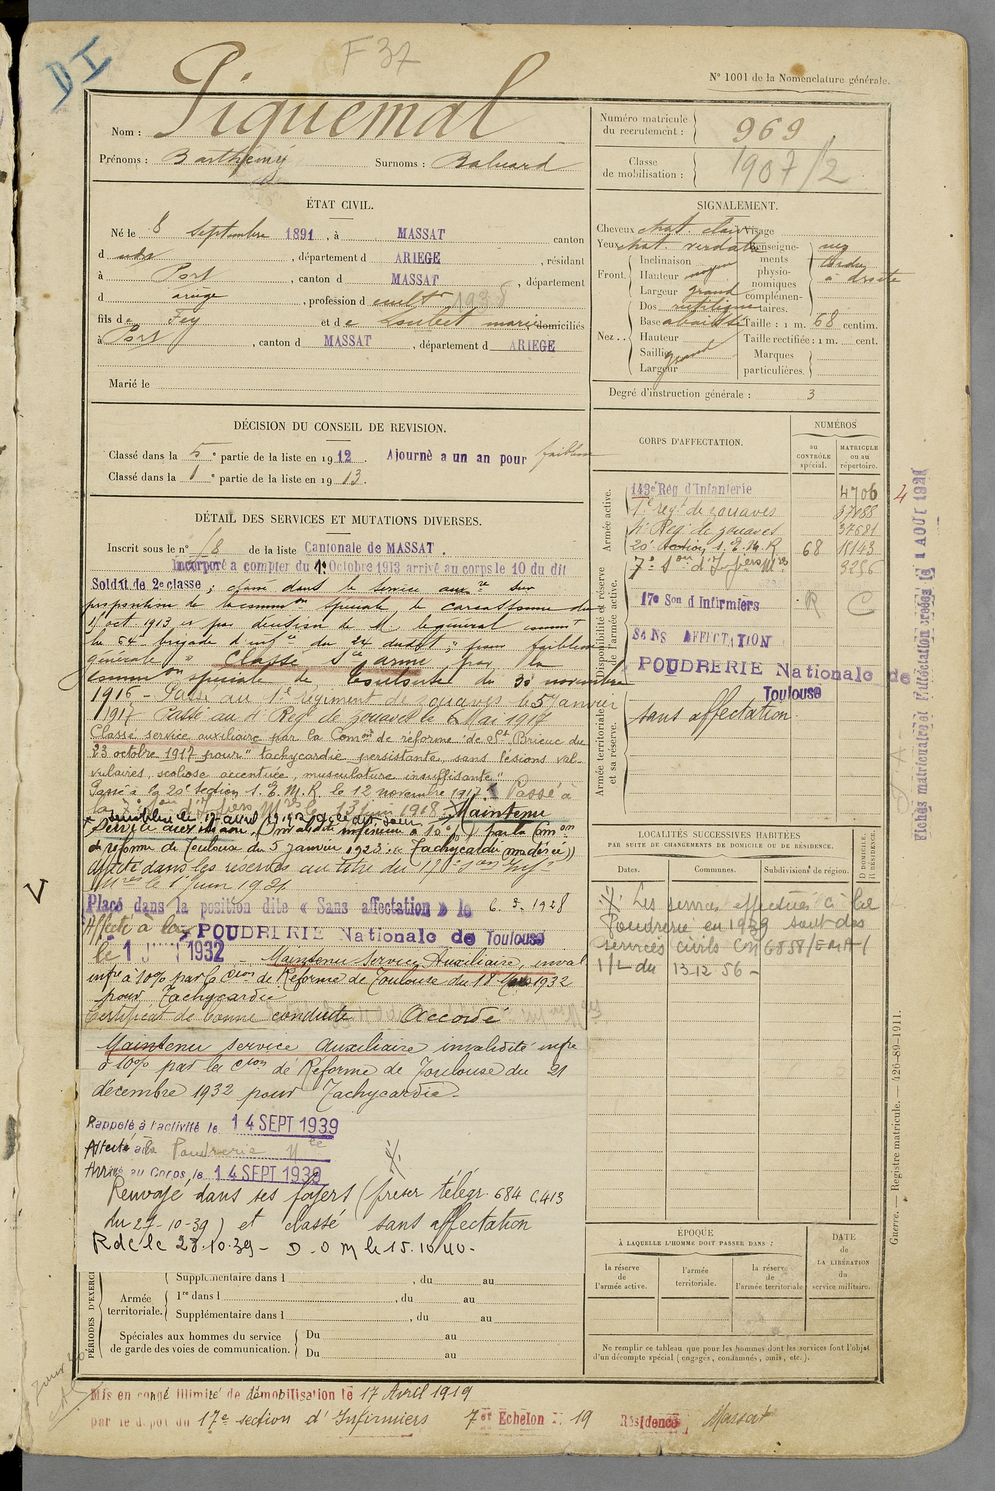 D I
F 37
N° 1001 de la Nomenclature générale.
Nom : Piquemal
Prénoms : Barthémy Surnoms : Baluard
Numéro matricule du recrutement : 969
Classe de mobilisation : 1907/2
ÉTAT CIVIL.
Né le 8 septembre 1891, à MASSAT canton
d udit, département d ARIEGE, résidant
à Port, canton d MASSAT, département
d ariège, profession d cultr 1938
fils de Fey et de Loubet marie domiciliés
à Port, canton d MASSAT, département d ARIEGE
Marié le
SIGNALEMENT.
Cheveux chat. clair Visage
Yeux chat. verdatre Renseignements physionomiques complémentaires. nez tordu à droite
Front. Inclinaison moyen
Hauteur
Largeur grand
Nez .. Dos rectiligne
Base abaissée Taille : 1 m. 68 centim.
Hauteur Taille rectifiée : 1 m. cent.
Saillie grand Marques
Largeur particulières.
Degré d'instruction générale : 3
DÉCISION DU CONSEIL DE REVISION.
Classé dans la 5e partie de la liste en 1912. Ajourné a un an pour faiblesse
Classé dans la 1e partie de la liste en 1913.
DÉTAIL DES SERVICES ET MUTATIONS DIVERSES.
Inscrit sous le n° 18 de la liste Cantonale de MASSAT.
Incorporé a compter du 1er Octobre 1913 arrivé au corps le 10 du dit
Soldat de 2e classe ; classé dans le service auxre sur
proposition de la common spéciale de Carcassonne du
oct 1913 et par décision de M le général commt
la 64e brigade d'infie du 24 dudit ; pour faiblesse
générale " Classé Sce armé par la
common spéciale de Toulouse du 30 novembre
1916 - Passé au 1e régiment de zouaves le 5 Janvier
1917 - Passé au 4e Reg. de zouaves le 6 Mai 1917
Classé service auxiliaire par la Comon de réforme de St Brieuc du
23 octobre 1917 pour " tachycardie persistante, sans lésions val-
vulaires, scoliose accentuée, musculature insuffisante "
Passé à la 20e section S. E. M. R. le 12 novembre 1917. Passé à
la 7e Son d'Infiers Mres le 13 Juin 1918. Maintenu
Service auxiliaire, invalidité inférieure à 10% par la Comon
de réforme de Toulouse du 5 janvier 1923. « Tachycardie modérée »
Affecté dans les réserves au titre du 17e Son Inf
Mres le 1 Juin 1921
Placé dans la position dite « Sans affectation » le 6. 3. 1928
Affecté à la POUDRERIE Nationale de Toulouse
le 1 JUI 1932 - Maintenu Service Auxiliaire, inval
infre à 10% par la Cion de Réforme de Toulouse du 18 Mars 1932
pour Tachycardie
Certificat de bonne conduite Accordé
Maintenu service auxiliaire invalidité infre
à 10% par la Cion de Réforme de Toulouse du 21
décembre 1932 pour Tachycardie.
Rappelé à l'activité le 14 SEPT 1939
Affecté à la Poudrerie Nle
Arrivé au Corps le 14 SEPT 1939
Renvoyé dans ses foyers (prescr télégr. 684 C413
du 27-10-39) et classé sans affectation
Rdc le 28.10.39 - D. O M le 15.10.40 -
PÉRIODES D'EXERCI
Supplémentaire dans l , du au
Armée territoriale. 1re dans l , du au
Supplémentaire dans l , du au
Spéciales aux hommes du service de garde des voies de communication. Du au
Du au
Mis en congé illimité de démobilisation le 17 Avril 1919
par le dépôt du 17e section d'Infirmiers 7er Echelon 19 Résidence Massat
CORPS D'AFFECTATION.
NUMÉROS
au CONTRÔLE spécial.
MATRICULE ou au répertoire.
Armée active.
143e Rég d'Infanterie 4706
1e regt de zouaves 37188
4e Reg. de zouaves 37681
20e Section S. E. M. R 68 11143
7e Son d'Infiers Mres 3256
Disponibilité et réserve de l'armée active.
17e Son d Infirmiers R C
SANS AFFECTATION
POUDRERIE Nationale de
Toulouse
Armée territoriale et sa réserve.
sans affectation
Fiches matricule et d'affectation créées le 1 AOUT 192
LOCALITÉS SUCCESSIVES HABITÉES
PAR SUITE DE CHANGEMENTS DE DOMICILE OU DE RÉSIDENCE.
Dates. Communes. Subdivisions de région. D DOMICILE. R RÉSIDENCE.
Les services effectués à la
Poudrerie en 1939 sont des
services civils Con 6858/EMA/
1/L du 13.12.56 -
ÉPOQUE
À LAQUELLE L'HOMME DOIT PASSER DANS :
la réserve de l'armée active.
l'armée territoriale.
la réserve de l'armée territoriale
DATE de LA LIBÉRATION du service militaire.
Ne remplir ce tableau que pour les hommes dont les services font l'objet
d'un décompte spécial (engagés, condamnés, omis, etc.).
Guerre. — Registre matricule. — 426-89-1911.